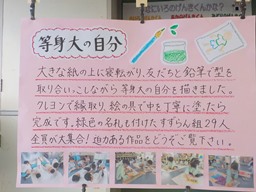 等身大の自分
大きな紙の上に寝転がり、友だちと鉛筆で型を
取り合いっこしながら等身大の自分を描きました。
クレヨンで縁取り、絵の具で中を丁寧に塗ったら
完成です。緑色の名札も付けたすずらん組29人
全員が大集合!迫力ある作品をどうぞご覧下さい。